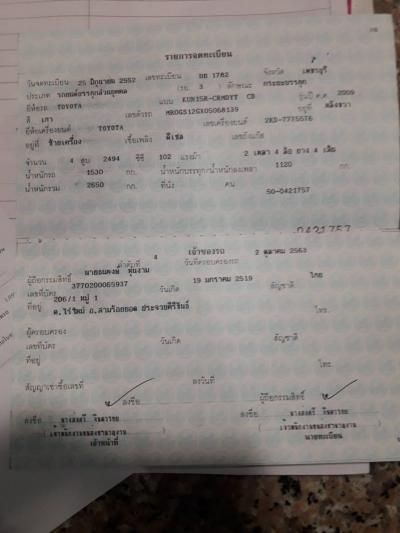 รายการจดทะเบียน
วันจดทะเบียน 25 มิถุนายน 2552 เลขทะเบียน บย 1762 จังหวัด เพชรบุรี
ประเภท รถยนต์บรรทุกส่วนบุคคล (รย. 3 ) ลักษณะ กระบะบรรทุก
ยี่ห้อรถ TOYOTA แบบ KUN15R-CRMDYT CD รุ่นปี ค.ศ. 2009
สี เทา เลขตัวรถ MR0GS12G 05068139 อยู่ที่
ยี่ห้อเครื่องยนต์ TOYOTA เลขเครื่องยนต์ 2KD-7775576
อยู่ที่ ซ้ายเครื่อง เชื้อเพลิง ดีเซล เลขถังแก๊ส
จำนวน 4 สูบ 2494 ซีซี 102 แรงม้า 2 เพลา 4 ล้อ ยาง 4 เส้น
น้ำหนักรถ 1530 กก. น้ำหนักบรรทุก/น้ำหนักลงเพลา 1120 กก.
น้ำหนักรวม 2650 กก. ที่นั่ง คน
50-0421757
0421757
เจ้าของรถ
ลำดับที่ 4 วันที่ครอบครองรถ 2 ตุลาคม 2563
ผู้ถือกรรมสิทธิ์
เลขที่บัตร 3770200065937 วันเกิด 19 มกราคม 2519 สัญชาติ ไทย
ที่อยู่ 206/1 หมู่ 1
ต.ไร่ใหม่ อ.สามร้อยยอด ประจวบคีรีขันธ์ โทร.
ผู้ครอบครอง
เลขที่บัตร วันเกิด สัญชาติ
ที่อยู่ โทร.
สัญญาเช่าซื้อเลขที่ ลงวันที่
ลงชื่อ ผู้ถือกรรมสิทธิ์
ลงชื่อ ลงชื่อ
( เจ้าพนักงานขนส่งชำนาญงาน ) ( เจ้าพนักงานขนส่งชำนาญงาน )
เจ้าหน้าที่ นายทะเบียน